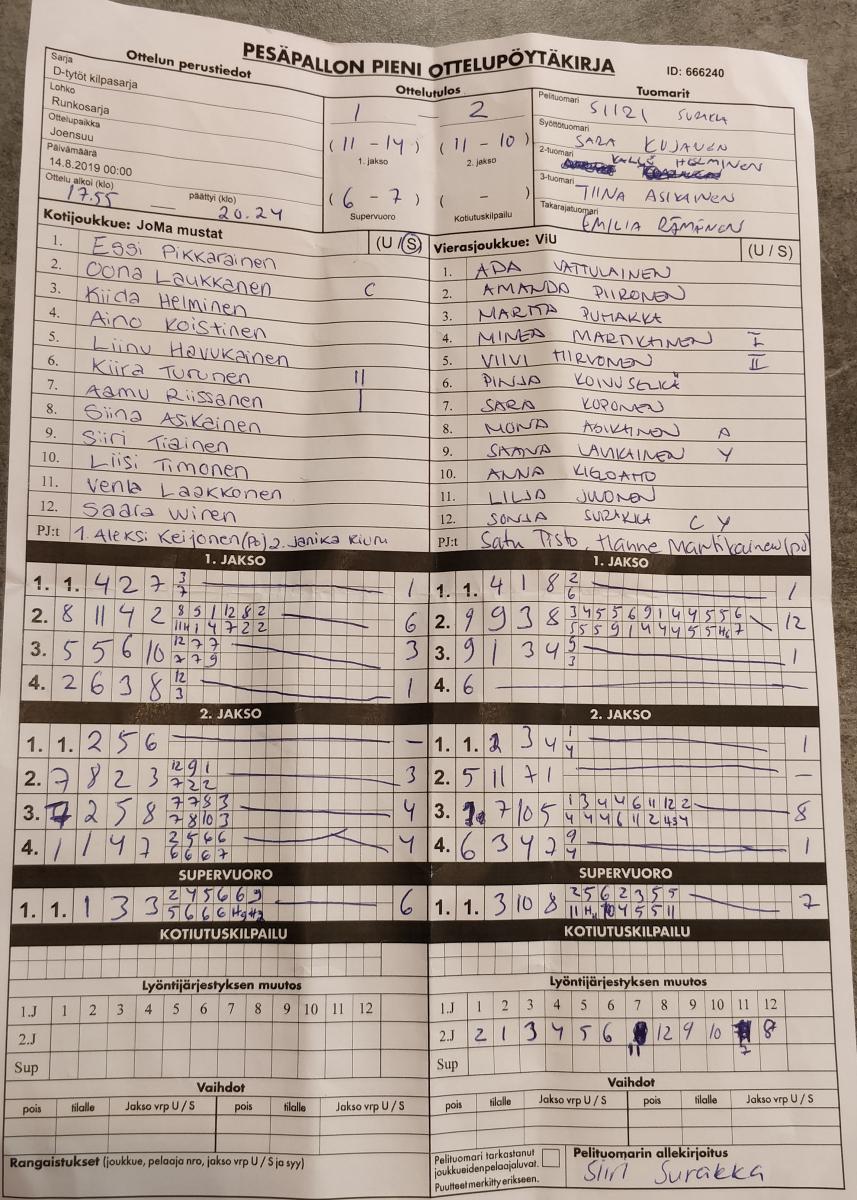 PESÄPALLON PIENI OTTELUPÖYTÄKIRJA
ID: 666240
Ottelun perustiedot
Sarja
D-tytöt kilpasarja
Lohko
Runkosarja
Ottelupaikka
Joensuu
Päivämäärä
14.8.2019 00:00
Ottelu alkoi (klo) päättyi (klo)
17.55 — 20.24
Ottelutulos
1 — 2
(11 - 14) (11 - 10)
1. jakso 2. jakso
(6 - 7) ( - )
Supervuoro Kotiutuskilpailu
Tuomarit
Pelituomari SIIRI SURAKKA
Syöttötuomari SARA KUJANEN
2-tuomari KALLE HELMINEN
3-tuomari TIINA ASIKAINEN
Takarajatuomari EMILIA RÄMÄNEN
Kotijoukkue: JoMa mustat (U / S)
1. Essi Pikkarainen
2. Oona Laukkanen
3. Kiida Helminen C
4. Aino Koistinen
5. Liinu Havukainen
6. Kiira Turunen II
7. Aamu Riissanen I
8. Siina Asikainen
9. Siiri Tiainen
10. Liisi Timonen
11. Venla Laakkonen
12. Saara Wiren
PJ:t 1. Aleksi Keijonen (PO) 2. Janika
Vierasjoukkue: ViU (U / S)
1. ADA VATTULAINEN
2. AMANDA PIIRONEN
3. MARTTA PUHAKKA
4. MINEA MARTIKAINEN I
5. VIIVI HIRVONEN II
6. PINJA KOIVUSELKÄ
7. SARA KOPONEN
8. MONA ASIKAINEN A
9. SAANA LAUKAINEN Y
10. ANNA KIELOAHO
11. LILJA JUONEN
12. SONJA SURAKKA C Y
PJ:t Satu Tisto, Hanne Martikainen (PO)
1. JAKSO
1. 1. 4 2 7 3 1
7
2. 8 11 4 2 8 5 1 12 8 2 6
11 H 1 4 7 2 2
3. 5 5 6 10 12 7 7 3
7 7 9
4. 2 6 3 8 12 1
3
1. JAKSO
1. 1. 4 1 8 2 1
6
2. 9 9 3 8 3 4 5 5 6 9 1 4 4 5 5 6 12
5 5 5 9 1 4 4 4 5 5 H6 7
3. 9 1 3 4 9 1
3
4. 6 —
2. JAKSO
1. 1. 2 5 6 —
2. 7 8 2 3 12 9 1 3
7 2 2
3. 7 2 5 8 7 7 8 3 4
7 8 10 3
4. 1 1 4 7 2 5 6 6 4
6 6 6 7
2. JAKSO
1. 1. 2 3 4 1 1
4
2. 5 11 7 1 —
3. 7 10 5 1 3 4 4 6 11 12 2 8
4 4 4 6 11 2
4. 6 3 4 7 9 1
4
SUPERVUORO
1. 1. 1 3 3 2 4 5 6 6 9 6
5 6 6 6
SUPERVUORO
1. 1. 3 10 8 2 5 6 2 3 5 5 7
11 10 4 5 5 11
KOTIUTUSKILPAILU
KOTIUTUSKILPAILU
Lyöntijärjestyksen muutos
1.J 1 2 3 4 5 6 7 8 9 10 11 12
2.J
Sup
Lyöntijärjestyksen muutos
1.J 1 2 3 4 5 6 7 8 9 10 11 12
2.J 2 1 3 4 5 6 11 12 9 10 7 8
Sup
Vaihdot
pois tilalle Jakso vrp U / S pois tilalle Jakso vrp U / S
Vaihdot
pois tilalle Jakso vrp U / S pois tilalle Jakso vrp U / S
Rangaistukset (joukkue, pelaaja nro, jakso vrp U / S ja syy)
Pelituomari tarkastanut
joukkueiden pelaajaluvat.
Puutteet merkitty erikseen.
Pelituomarin allekirjoitus
Siiri Surakka